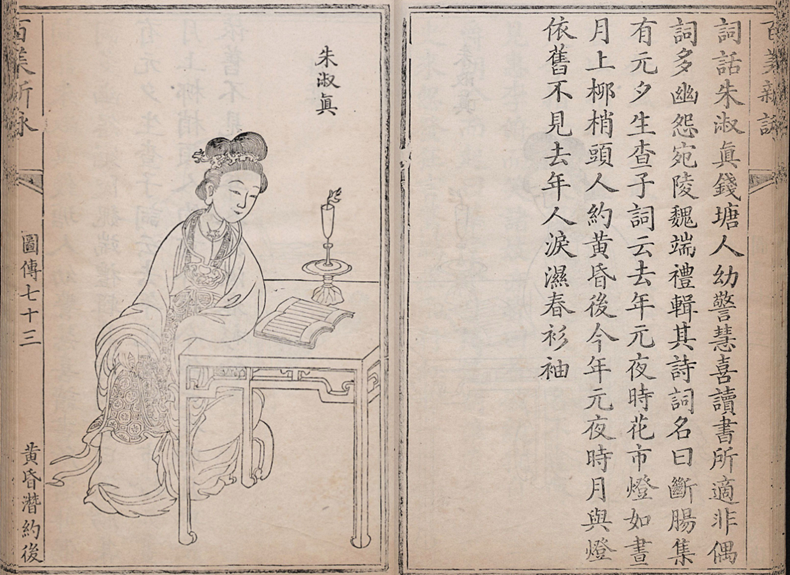 百美新詠
詞話朱淑眞錢塘人幼警慧喜讀書所適非偶
詞多幽怨宛陵魏端禮輯其詩詞名曰斷腸集
有元夕生查子詞云去年元夜時花市燈如晝
月上柳梢頭人約黃昏後今年元夜時月與燈
依舊不見去年人淚濕春衫袖
朱淑眞
百美新詠
圖傳七十三
黃昏潛約後